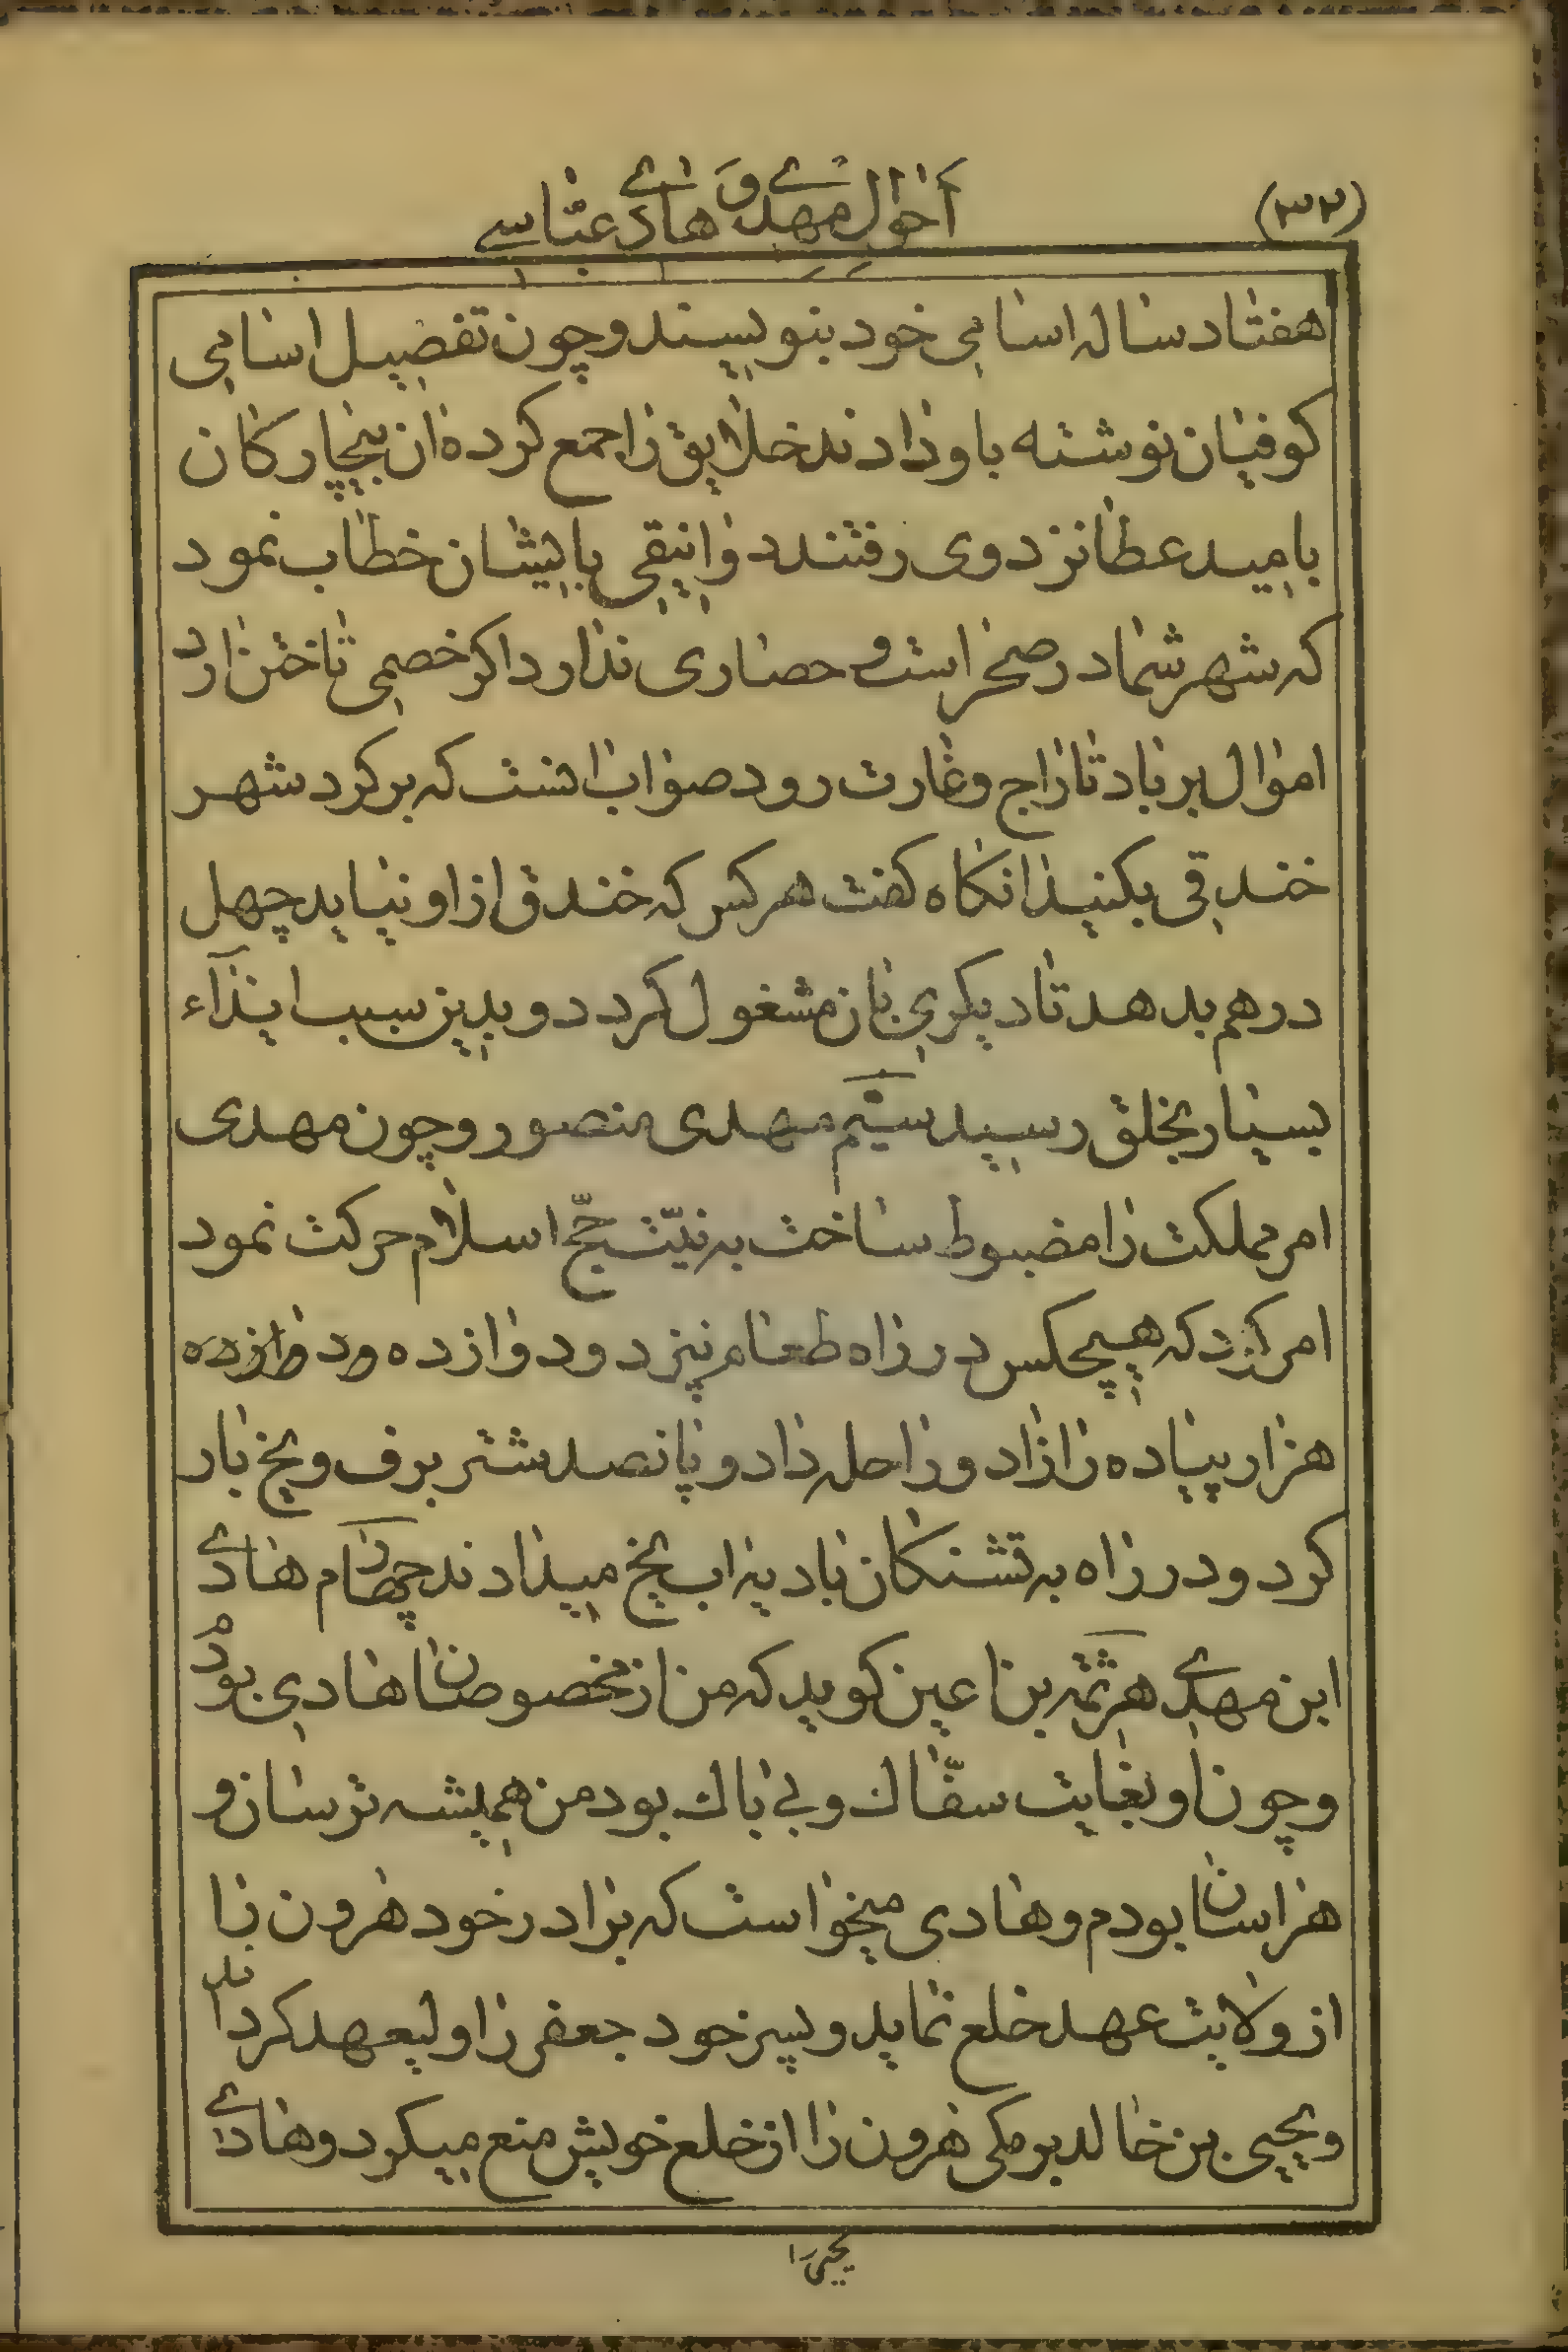 (۳۳۲)
احوال مهدی و هادی عباسی
هفتاد ساله اسامی خود بنویسند و چون تفصیل اسامی
کوفیان نوشته باو دادند خلایق را جمع کرده ان بیچارکان
بامید عطا نزد وی رفتند دوانیقی بایشان خطاب نمود
که شهر شما در صحراست و حصاری ندارد اکر خصمی تاختن ارد
اموال بر باد تاراج و غارت رود صواب انست که بر کرد شهر
خندقی بکنید انکاه کفت هر کس که خندق از او نیاید چهل
درهم بدهد تا دیکری بان مشغول کردد و بدین سبب ایذآء
بسیار بخلق رسید سیّم مهدی منصور و چون مهدی
امر مملکت را مضبوط ساخت به نیّت حجّ اسلام حرکت نمود
امر کرد که هیچکس در راه طعام نپزد و دوازده ودوازده
هزار پیاده را زاد و راحله داد و پانصد شتر برف و یخ بار
کرد و در راه به تشنکان بادیه اب یخ میدادند چهارم هادی
ابن مهدی هرثمه بن اعین کوید که من از مخصوصان هادی بودم
و چون او بغایت سفّاک و بی باک بود من همیشه ترسان و
هراسان بودم و هادی میخواست که برادر خود هرون را
از ولایت عهد خلع نماید و پسر خود جعفر را ولیعهد کرداند
و یحیی بن خالد برمکی هرون را از خلع خویش منع میکرد و هادی
یحیی را